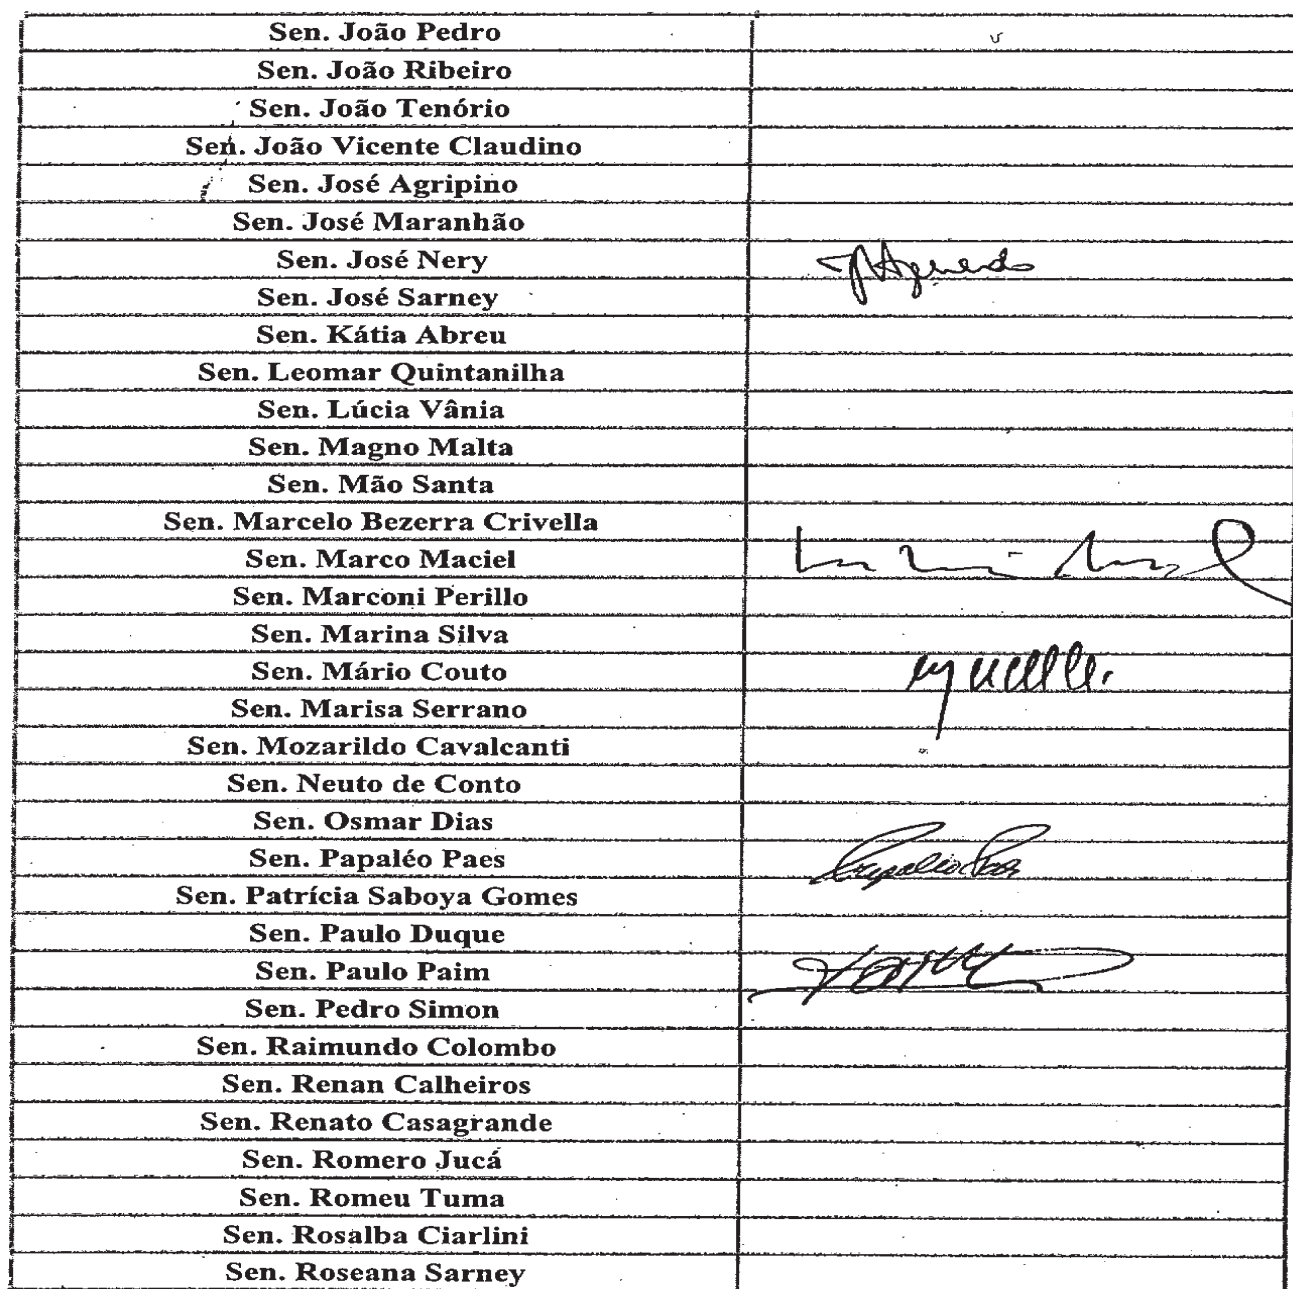 Sen. João Pedro
Sen. João Ribeiro
Sen. João Tenório
Sen. João Vicente Claudino
Sen. José Agripino
Sen. José Maranhão
Sen. José Nery
Sen. José Sarney
Sen. Kátia Abreu
Sen. Leomar Quintanilha
Sen. Lúcia Vânia
Sen. Magno Malta
Sen. Mão Santa
Sen. Marcelo Bezerra Crivella
Sen. Marco Maciel
Sen. Marconi Perillo
Sen. Marina Silva
Sen. Mário Couto
Sen. Marisa Serrano
Sen. Mozarildo Cavalcanti
Sen. Neuto de Conto
Sen. Osmar Dias
Sen. Papaléo Paes
Sen. Patrícia Saboya Gomes
Sen. Paulo Duque
Sen. Paulo Paim
Sen. Pedro Simon
Sen. Raimundo Colombo
Sen. Renan Calheiros
Sen. Renato Casagrande
Sen. Romero Jucá
Sen. Romeu Tuma
Sen. Rosalba Ciarlini
Sen. Roseana Sarney